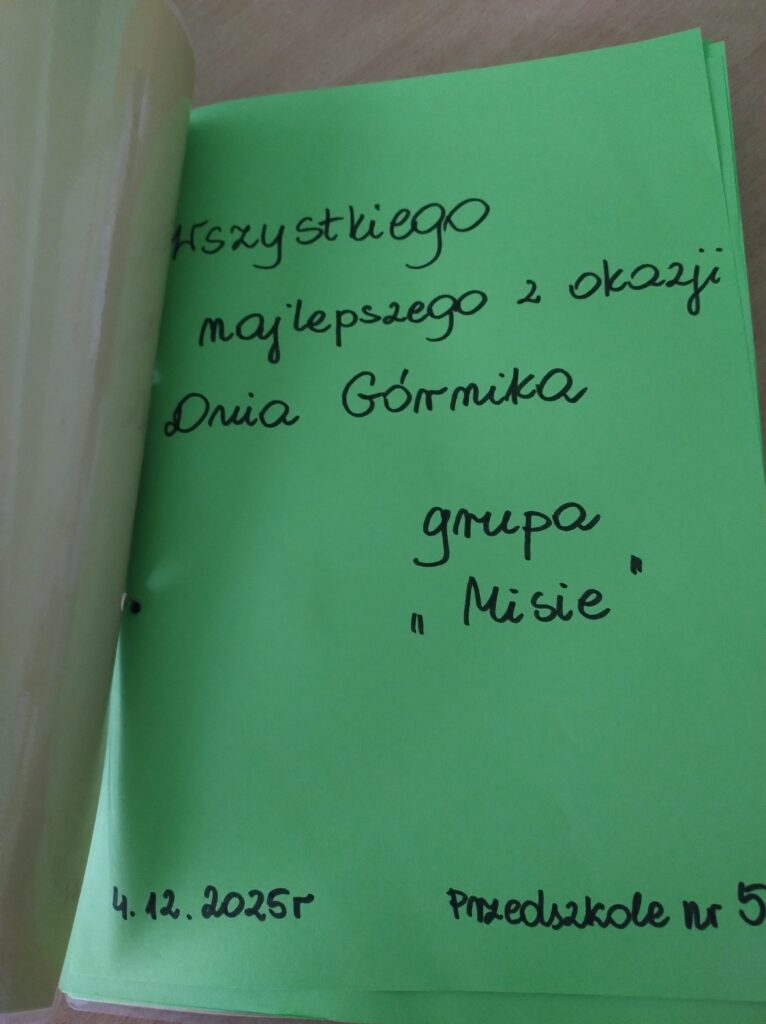 Wszystkiego
najlepszego z okazji
Dnia Górnika
grupa
„Misie"
4.12.2025r
Przedszkole nr 5